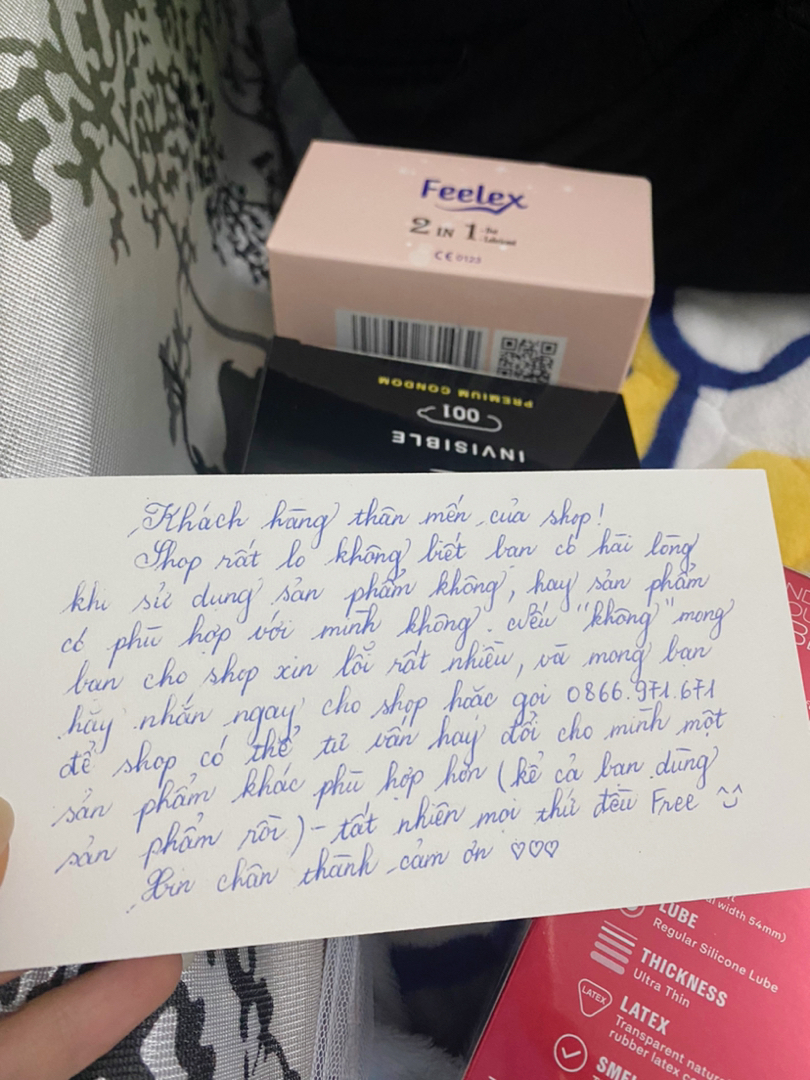 Feelex
2 IN 1
CE 0123
PREMIUM CONDOM
001
INVISIBLE
Khách hàng thân mến của shop!
Shop rất lo không biết bạn có hài lòng
khi sử dụng sản phẩm không, hay sản phẩm
có phù hợp với mình không. Nếu "không" mong
bạn cho shop xin lỗi rất nhiều, và mong bạn
hãy nhắn ngay cho shop hoặc gọi 0866.971.671
để shop có thể tư vấn hay đổi cho mình một
sản phẩm khác phù hợp hơn (kể cả bạn dùng
sản phẩm rồi) - tất nhiên mọi thứ đều Free ^^
Xin chân thành cảm ơn ♡♡♡
width 54mm)
LUBE
Regular Silicone Lube
THICKNESS
Ultra Thin
LATEX
LATEX
Transparent
rubber latex